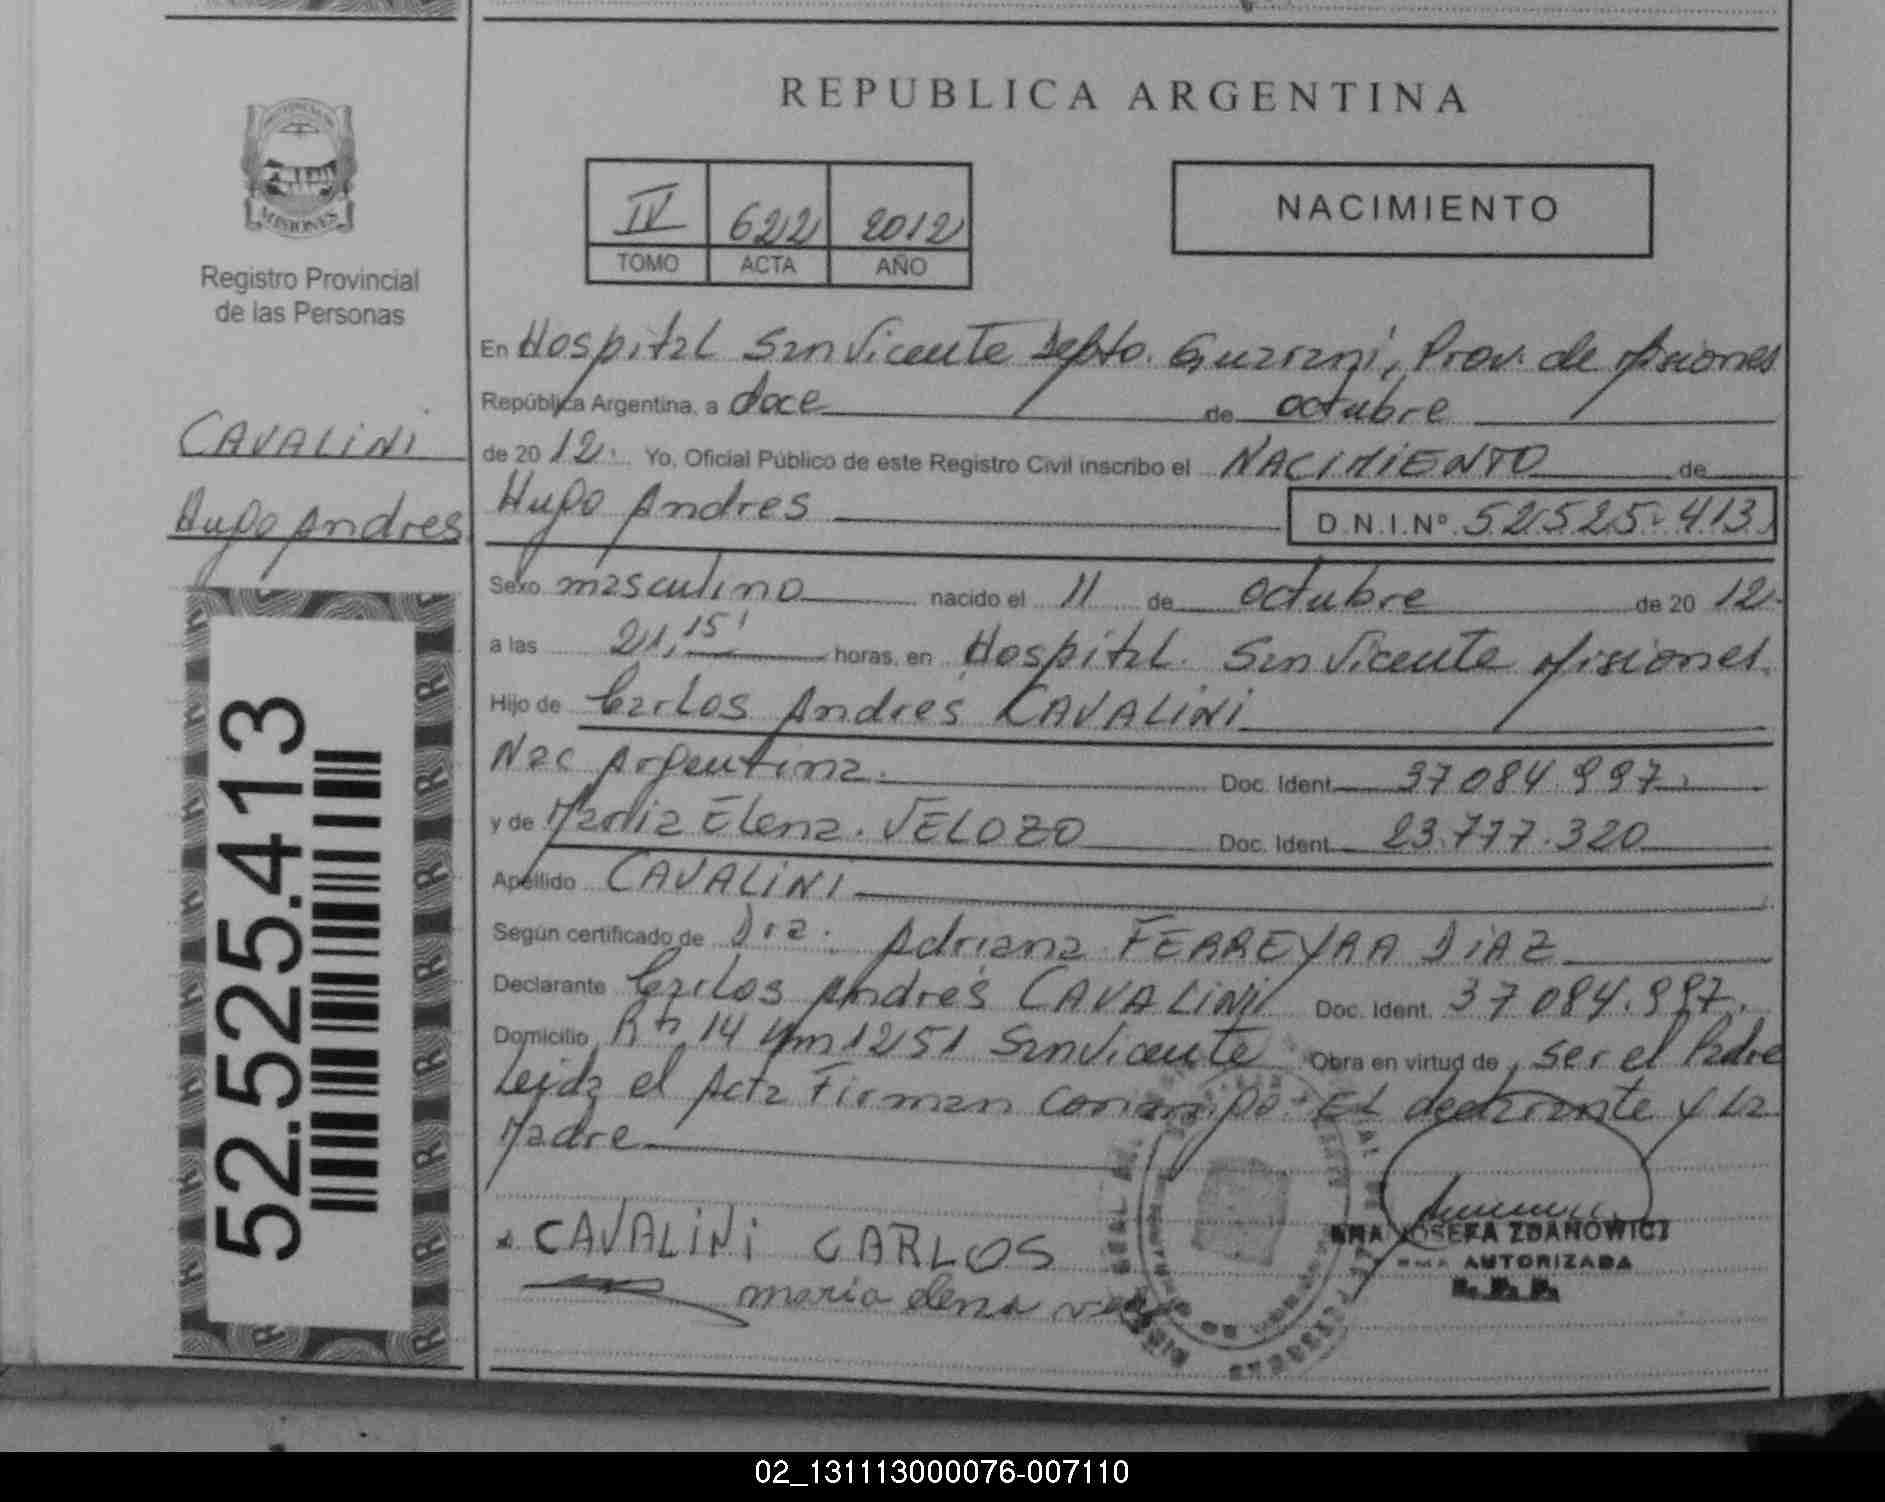 REPUBLICA ARGENTINA
MISIONES
Registro Provincial
de las Personas
IV 622 2012
TOMO ACTA AÑO
NACIMIENTO
CAVALINI
Hugo Andres
52.525.413
En Hospital San Vicente Depto. Guarani, Prov. de Misiones
República Argentina, a doce de octubre
de 2012. Yo, Oficial Público de este Registro Civil inscribo el NACIMIENTO de
Hugo Andres D.N.I.Nº 52.525.413
Sexo masculino nacido el 11 de octubre de 2012
a las 21,15' horas, en Hospital San Vicente Misiones.
Hijo de Carlos Andrés CAVALINI
Nac Argentina. Doc. Ident. 37084.997
y de María Elena VELOZO Doc. Ident. 23.777.320
Apellido CAVALINI
Según certificado de Dra. Adriana FERREYRA DIAZ
Declarante Carlos Andrés CAVALINI Doc. Ident. 37084.997.
Domicilio Rta 14 Km 1251 San Vicente Obra en virtud de ser el Padre
Leida el Acta Firman conmigo El declarante y la
Madre
CAVALINI CARLOS
maria elena
JOSEFA ZDANOWICZ
AUTORIZADA
R. P. P.
02_131113000076-007110